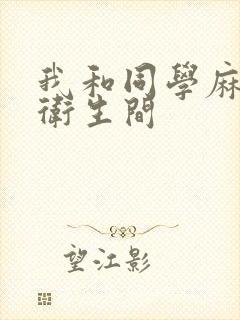 我和同學麻
衛生間
望江影